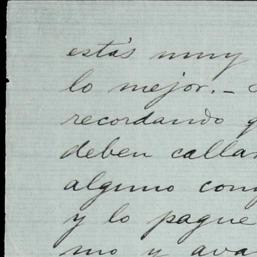 estás muy
lo mejor.-
recordando q
deben calla
alguno con
y lo pague
mo y ava